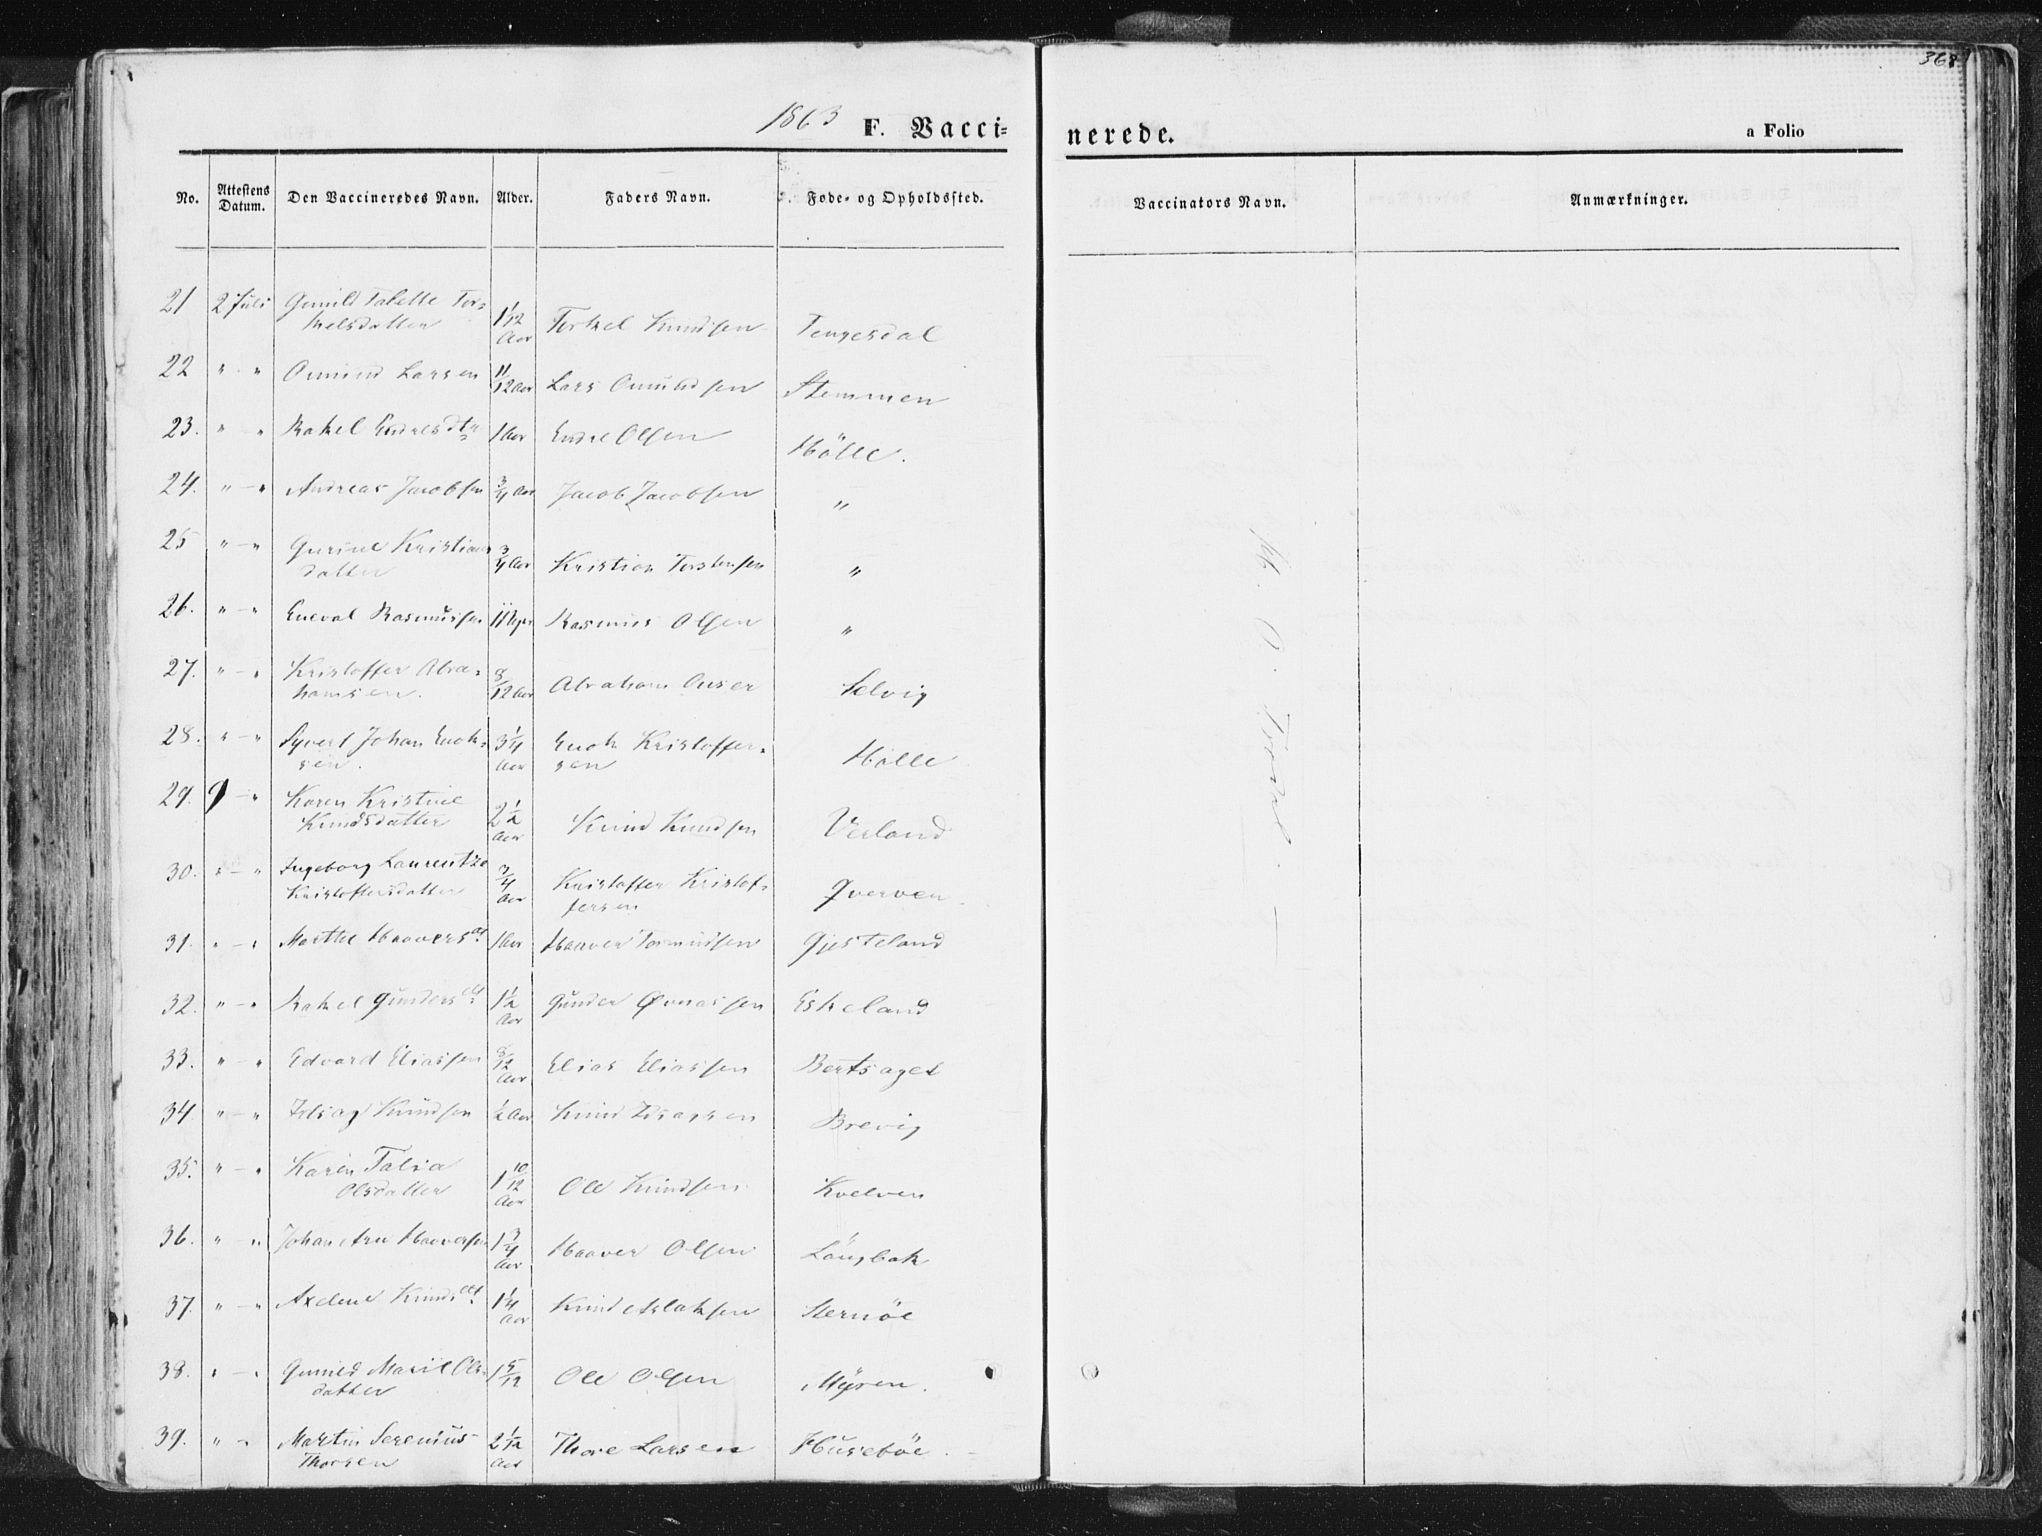 368
1863 F. Vacci=
nerede.
a Folio
No. Attestens Datum. Den Vaccineredes Navn. Alder. Faders Navn. Føde- og Opholdssted.
Vaccinators Navn. Anmærkninger.
21 2 Juli Gunild Tabette Tor-
kelsdatter 1 1/12 Aar Torkel Knudsen Tengesdal
22 " - " Omund Larsen 11/12 Aar Lars Omundsen Stemmen
23. " - " Rakel Endresdtr 1 Aar Endre Olsen Hölle.
24. " - " Andreas Jacobsen 3/4 Aar Jacob Jacobsen "
25 " - " Gurine Kristians
datter 3/4 Aar Kristian Torstensen "
26. " - " Eneval Rasmussen 11 Rasmus Olsen "
27. " - " Kristoffer Abra-
hamsen. 8/12 Aar Abraham Selvig
28. " - " Syvert Johan Enok-
sen. 3 1/4 Aar Enok Kristoffer-
sen Hölle
29. 9 - " Karen Kristine
Knudsdatter 2 1/2 Aar Knud Knudsen Verland
30. " - " Ingeborg Laurentze
Kristoffersdatter 3/4 Aar Kristoffer Kristof-
fersen Qverven.
31. " - " Marthe Haaversdt 1 Aar Haaver Tormudsen Gjesteland
32. " - " Rakel Gundersdt 1 1/2 Aar Gunder Eskeland
33. " - " Edvard Eliassen 8/12 Aar Elias Eliassen Bertsaget
34. " - " Knudsen 1/2 Aar Knud Brevig
35. " - " Karen Talia
Olsdatter 1 10/12 Aar Ole Knudsen Kvelven
36. " - " Johan Arn Haaversen 1 3/4 Aar Haaver Olsen Långbak
37. " - " Axeline Knudsdt 1 1/4 Aar Knud Aslaksen Sternöe
38. " - " Gunild Marie Ols-
datter 1 5/12 Ole Olsen Myren.
39. " - Martin Serenius
Thorsen 2 1/12 Aar Thore Larsen Husebøe.